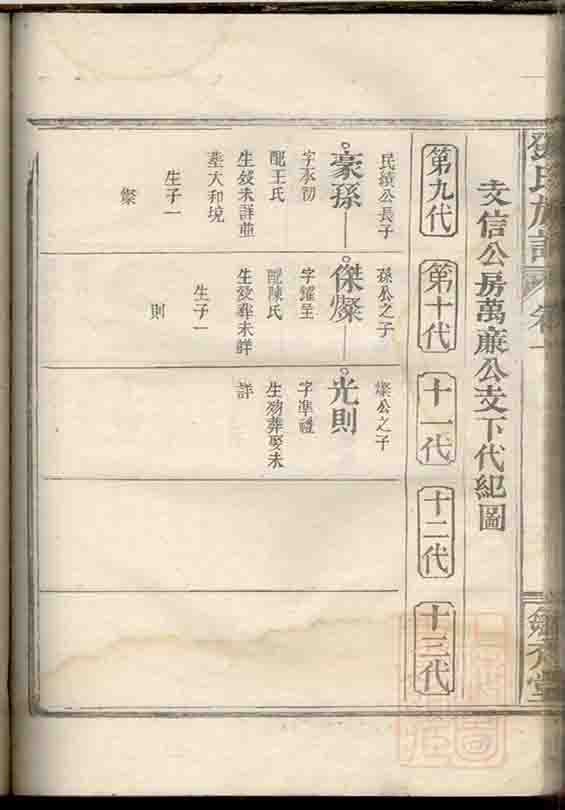 文信公房萬廉公支下代紀圖
第九代
第十代
十一代
十二代
十三代
民績公長子
豪孫
字永初
配王氏
生殁未詳葬
塟大和境
生子一
燦
孫公之子
傑燦
字耀呈
配陳氏
生殁葬未詳
生子一
則
燦公之子
光則
字準禮
生殁葬娶未
詳